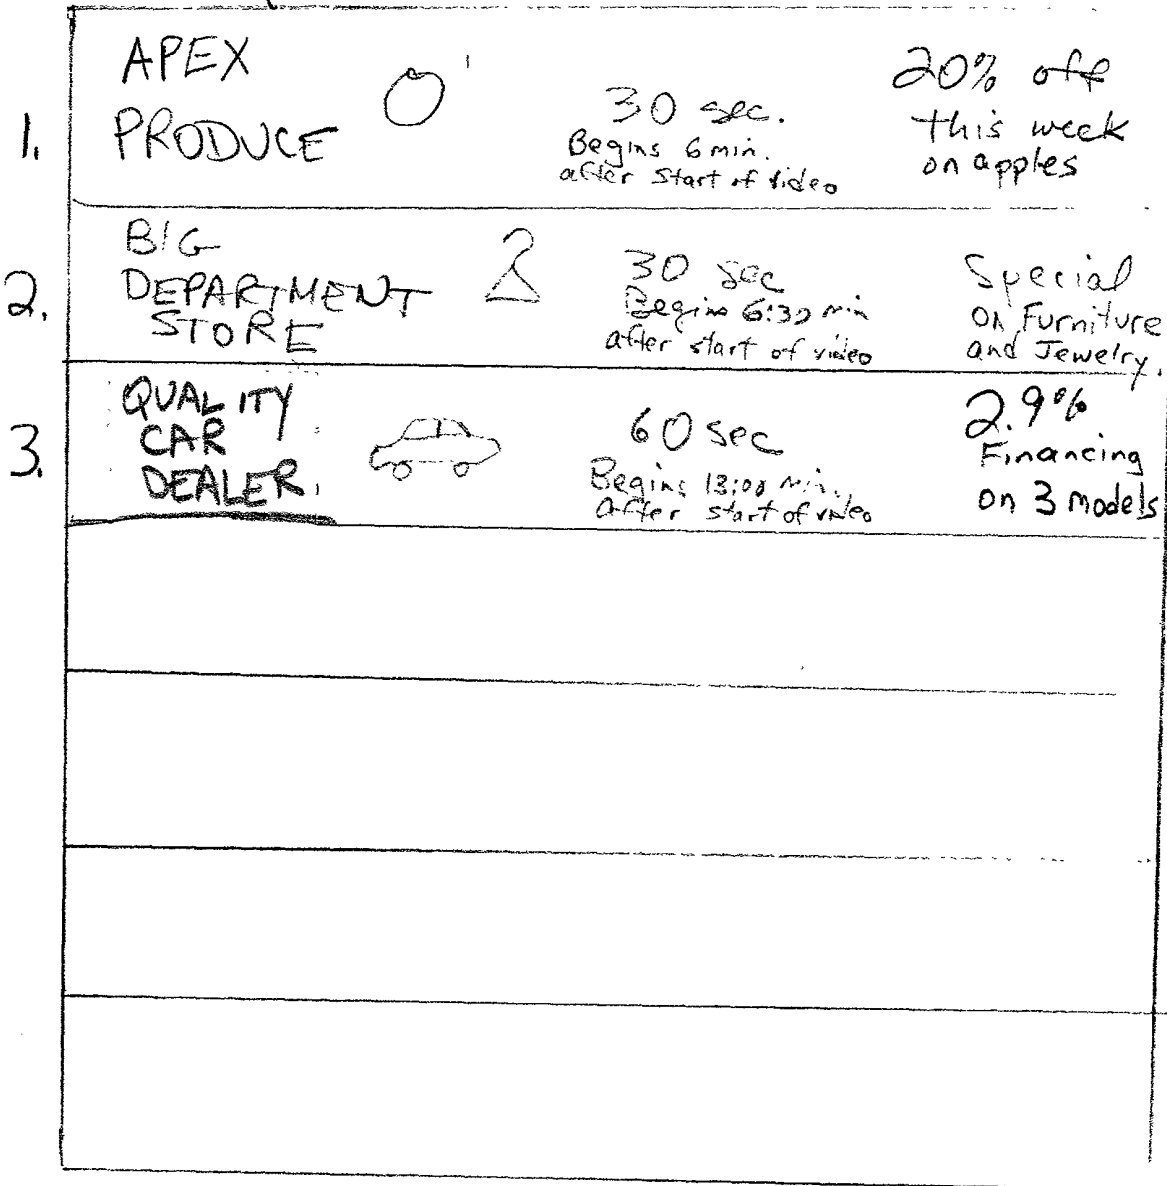 1.
APEX
PRODUCE
30 sec.
Begins 6 min.
after start of video
20% off
this week
on apples
2.
BIG
DEPARTMENT
STORE
30 sec
Begins 6:30 min
after start of video
Special
on Furniture
and Jewelry.
3.
QUALITY
CAR
DEALER.
60 sec
Begins 13:00 min.
after start of video
2.9%
Financing
on 3 models